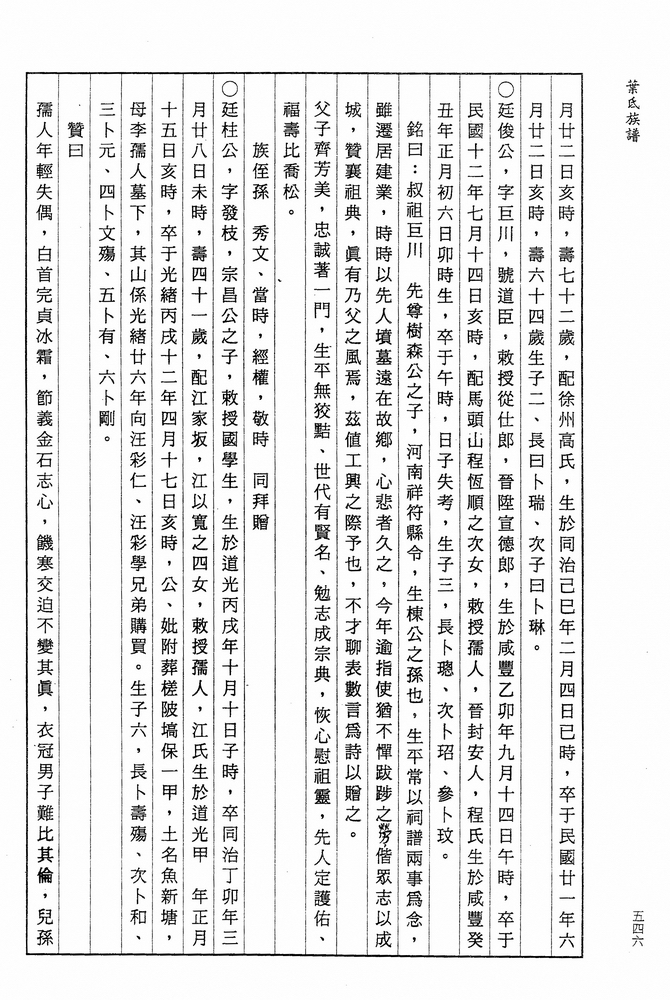 葉氏族譜
五四六
月廿二日亥時，壽七十二歲，配徐州高氏，生於同治己巳年二月四日巳時，卒于民國廿一年六
月廿二日亥時，壽六十四歲生子二、長曰卜瑞、次子曰卜琳。
○廷俊公，字巨川，號道臣，敕授從仕郎，晉陞宣德郎，生於咸豐乙卯年九月十四日午時，卒于
民國十二年七月十四日亥時，配馬頭山程恆順之次女，敕授孺人，晉封安人，程氏生於咸豐癸
丑年正月初六日卯時生，卒于午時，日子失考，生子三，長卜璁、次卜玿、參卜玟。
銘曰：叔祖巨川　先尊樹森公之子，河南祥符縣令，生棟公之孫也，生平常以祠譜兩事爲念，
雖遷居建業，時時以先人墳墓遠在故鄉，心悲者久之，今年逾指使猶不憚跋踄之勞，偕眾志以成
城，贊襄祖典，眞有乃父之風焉，茲值工興之際予也，不才聊表數言爲詩以贈之。
父子齊芳美，忠誠著一門，生平無狡黠、世代有賢名、勉志成宗典，恢心慰祖靈，先人定護佑、
福壽比喬松。
族侄孫　秀文、當時，經權，敬時　同拜贈
○廷柱公，字發枝，宗昌公之子，敕授國學生，生於道光丙戌年十月十日子時，卒同治丁卯年三
月廿八日未時，壽四十一歲，配江家坂，江以寬之四女，敕授孺人，江氏生於道光甲　年正月
十五日亥時，卒于光緒丙戌十二年四月十七日亥時，公、妣附葬槎陂塥保一甲，土名魚新塘，
母李孺人墓下，其山係光緒廿六年向汪彩仁、汪彩學兄弟購買。生子六，長卜壽殤、次卜和、
三卜元、四卜文殤、五卜有、六卜剛。
贊曰
孺人年輕失偶，白首完貞冰霜，節義金石志心，饑寒交迫不變其眞，衣冠男子難比其倫，兒孫